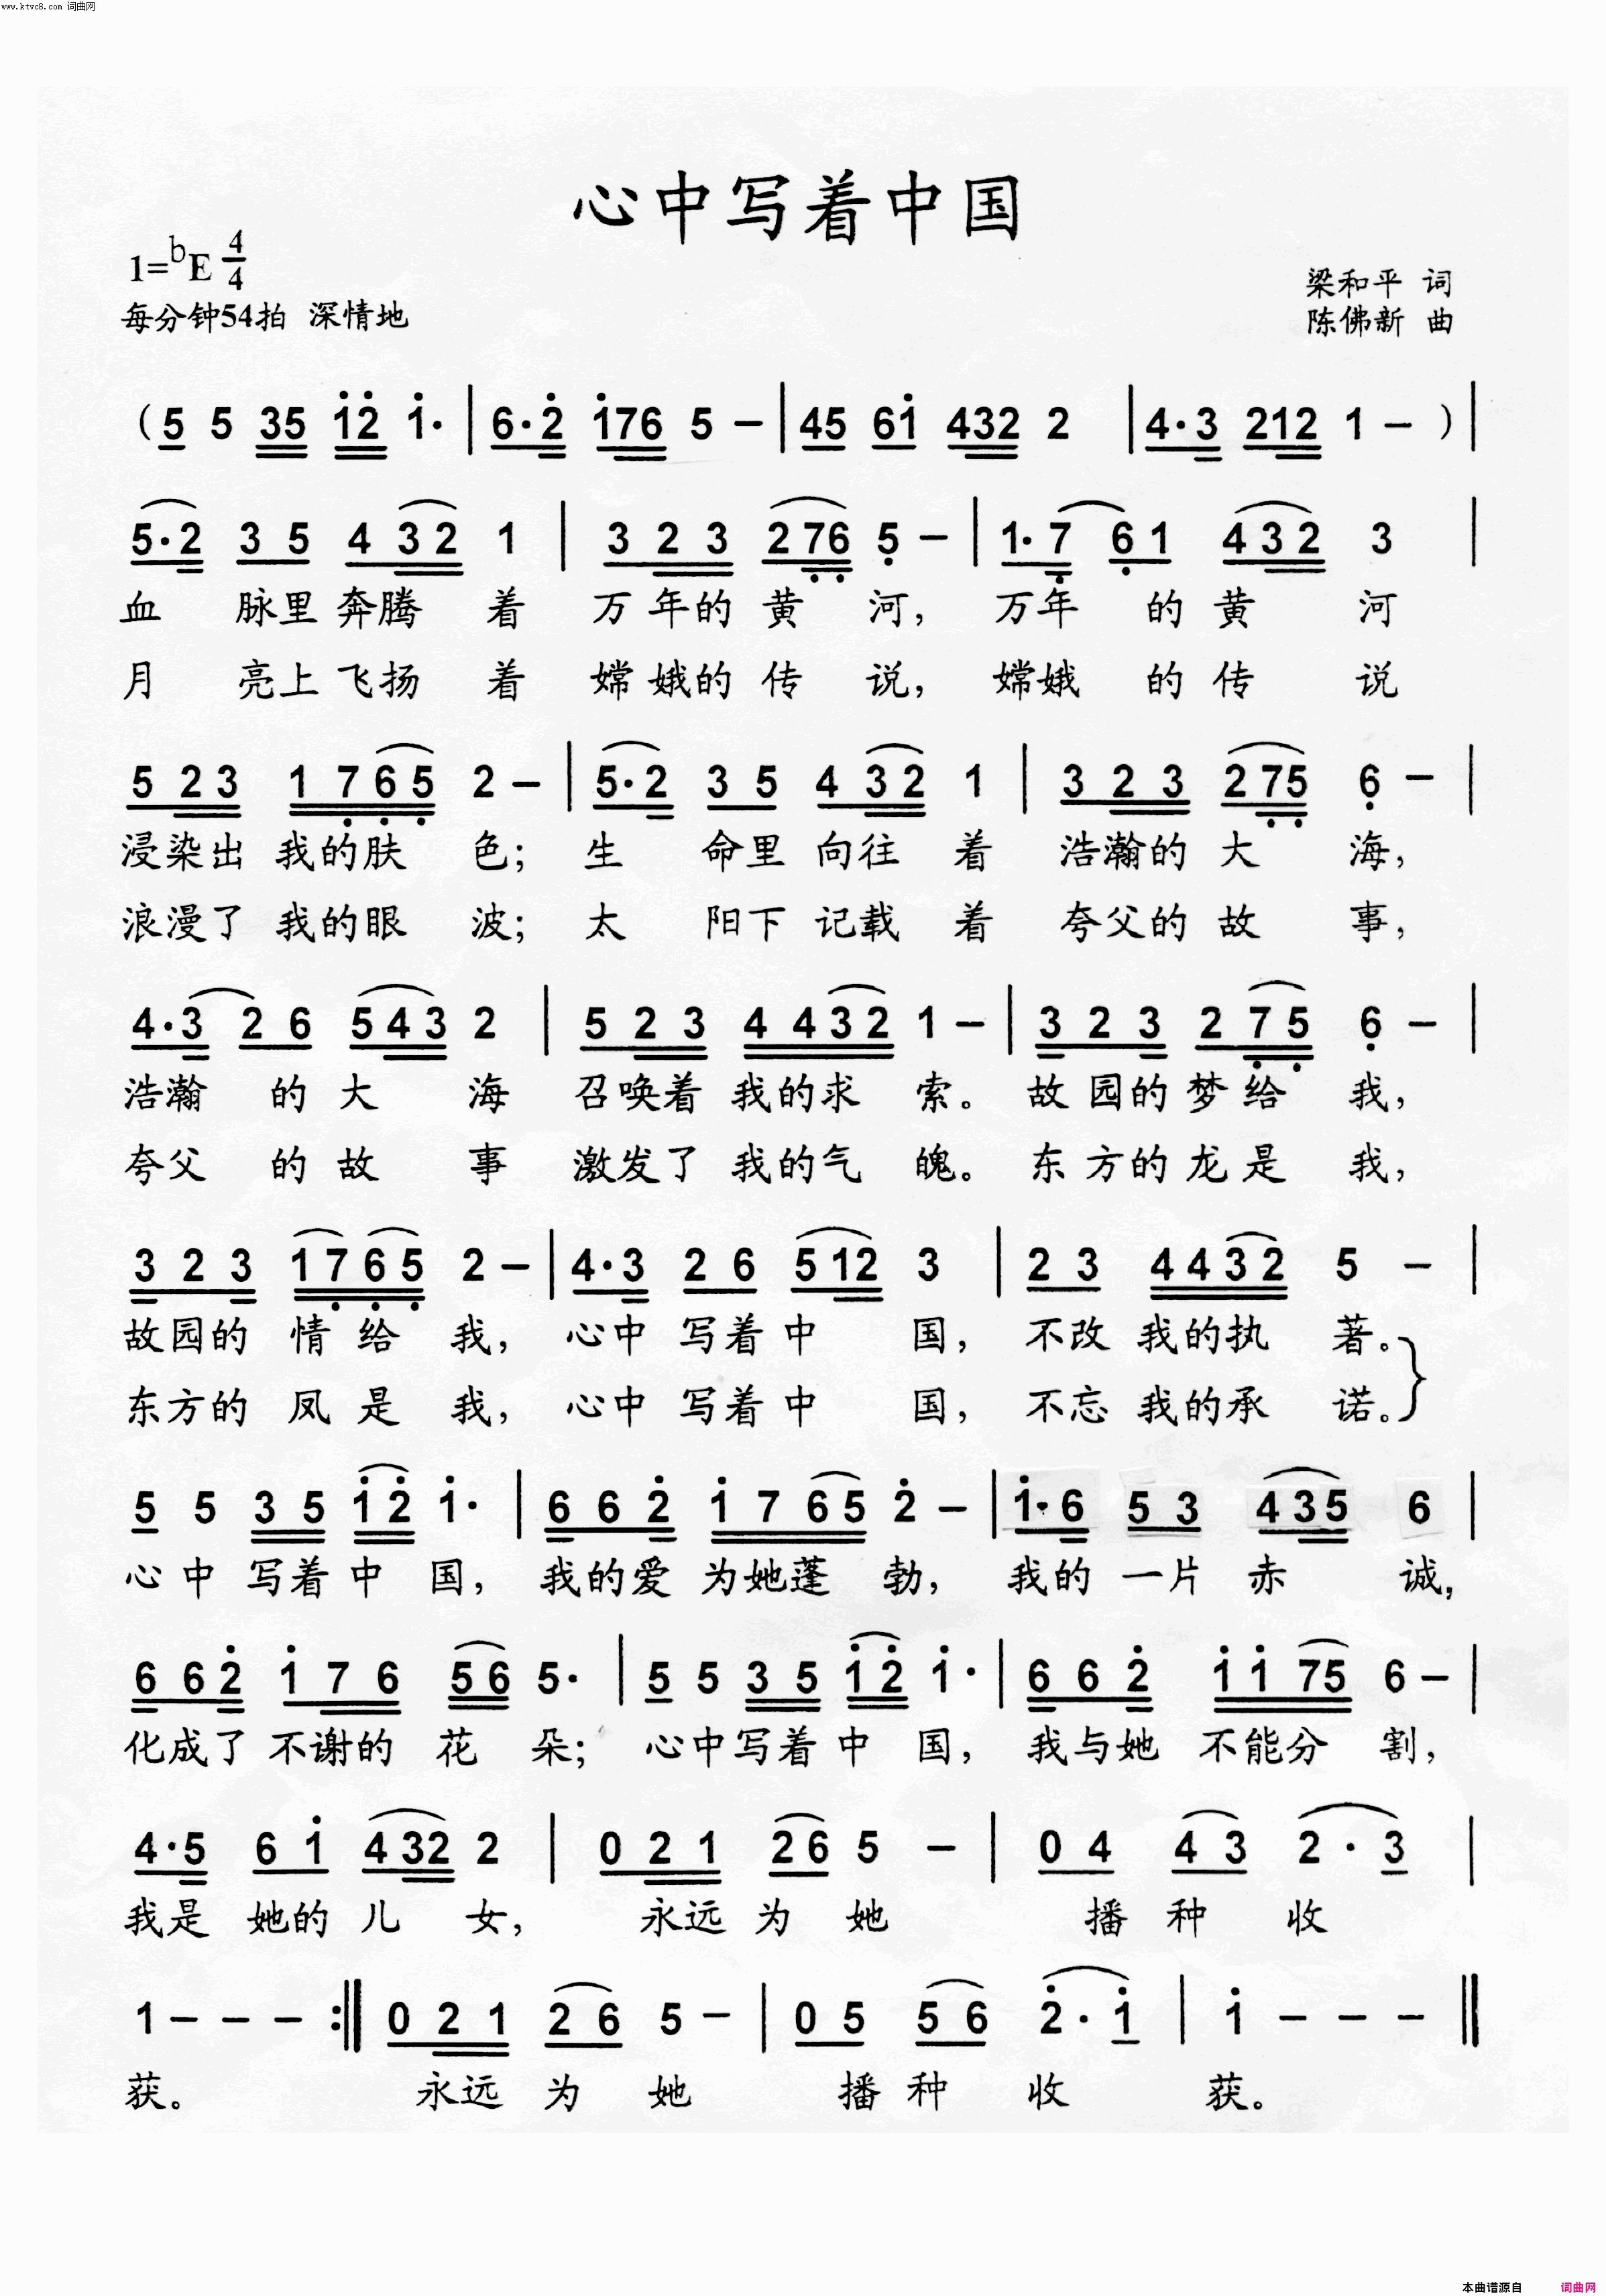 www.ktvc8.com 词曲网
心中写着中国
1=bE 4/4
梁和平 词
每分钟54拍 深情地
陈佛新 曲
(5 5 35 12 1· | 6·2 176 5 — | 45 61 432 2 | 4·3 212 1 — ) |
5·2 3 5 4 3 2 1 | 3 2 3 2 76 5 — | 1·7 6 1 4 3 2 3 |
血 脉里 奔腾 着 万 年的 黄 河, 万年 的 黄 河
月 亮上 飞扬 着 嫦 娥的 传 说, 嫦娥 的 传 说
5 2 3 1 7 6 5 2 — | 5·2 3 5 4 3 2 1 | 3 2 3 2 75 6 — |
浸染出 我的肤 色; 生 命里 向往 着 浩瀚的 大 海,
浪漫了 我的眼 波; 太 阳下 记载 着 夸父的 故 事,
4·3 2 6 5 4 3 2 | 5 2 3 4 4 3 2 1 — | 3 2 3 2 7 5 6 — |
浩瀚 的 大 海 召唤着 我的求 索。 故园的 梦给 我,
夸父 的 故 事 激发了 我的气 魄。 东方的 龙是 我,
3 2 3 1 7 6 5 2 — | 4·3 2 6 5 12 3 | 2 3 4 4 3 2 5 — |
故园的 情给 我, 心中 写着 中 国, 不改 我的执 著。
东方的 凤是 我, 心中 写着 中 国, 不忘 我的承 诺。
5 5 3 5 1 2 1· | 6 6 2 1 7 6 5 2 — | 1·6 5 3 4 3 5 6 |
心 中 写着 中 国, 我的爱 为她蓬 勃, 我的 一片 赤 诚,
6 6 2 1 7 6 5 6 5· | 5 5 3 5 1 2 1· | 6 6 2 1 1 7 5 6 — |
化成了 不谢的 花 朵; 心中写着 中 国, 我与她 不能分 割,
4·5 6 1 4 32 2 | 0 2 1 2 6 5 — | 0 4 4 3 2 · 3 |
我是 她的 儿 女, 永远 为 她 播 种 收
1 — — — :‖ 0 2 1 2 6 5 — | 0 5 5 6 2 · 1 | 1 — — — ‖
获。 永远 为 她 播 种 收 获。
本曲谱源自 词曲网